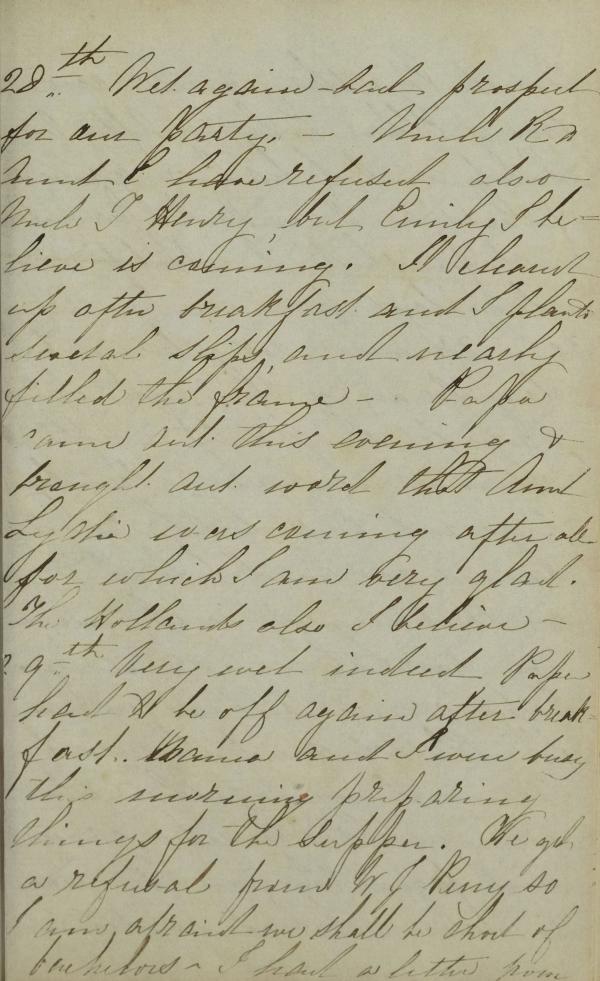 28th Wet again - bad prospect
for our party. - Uncle R &
Aunt E have refused also
Uncle T Henry, but Emily I be=
lieve is coming. It cleared
up after breakfast and I planted
several slips, and nearly
filled the frame - Papa
came out this evening &
brought out word that Aunt
Lydia was coming after all
for which I am very glad.
The Hollands also I believe -
29th Very wet indeed Papa
had to be off again after break=
fast. Mama and I were busy
this morning preparing
things for the supper. We got
a refusal from W J Perry so
I am afraid we shall be short of
bachelors - I had a letter from